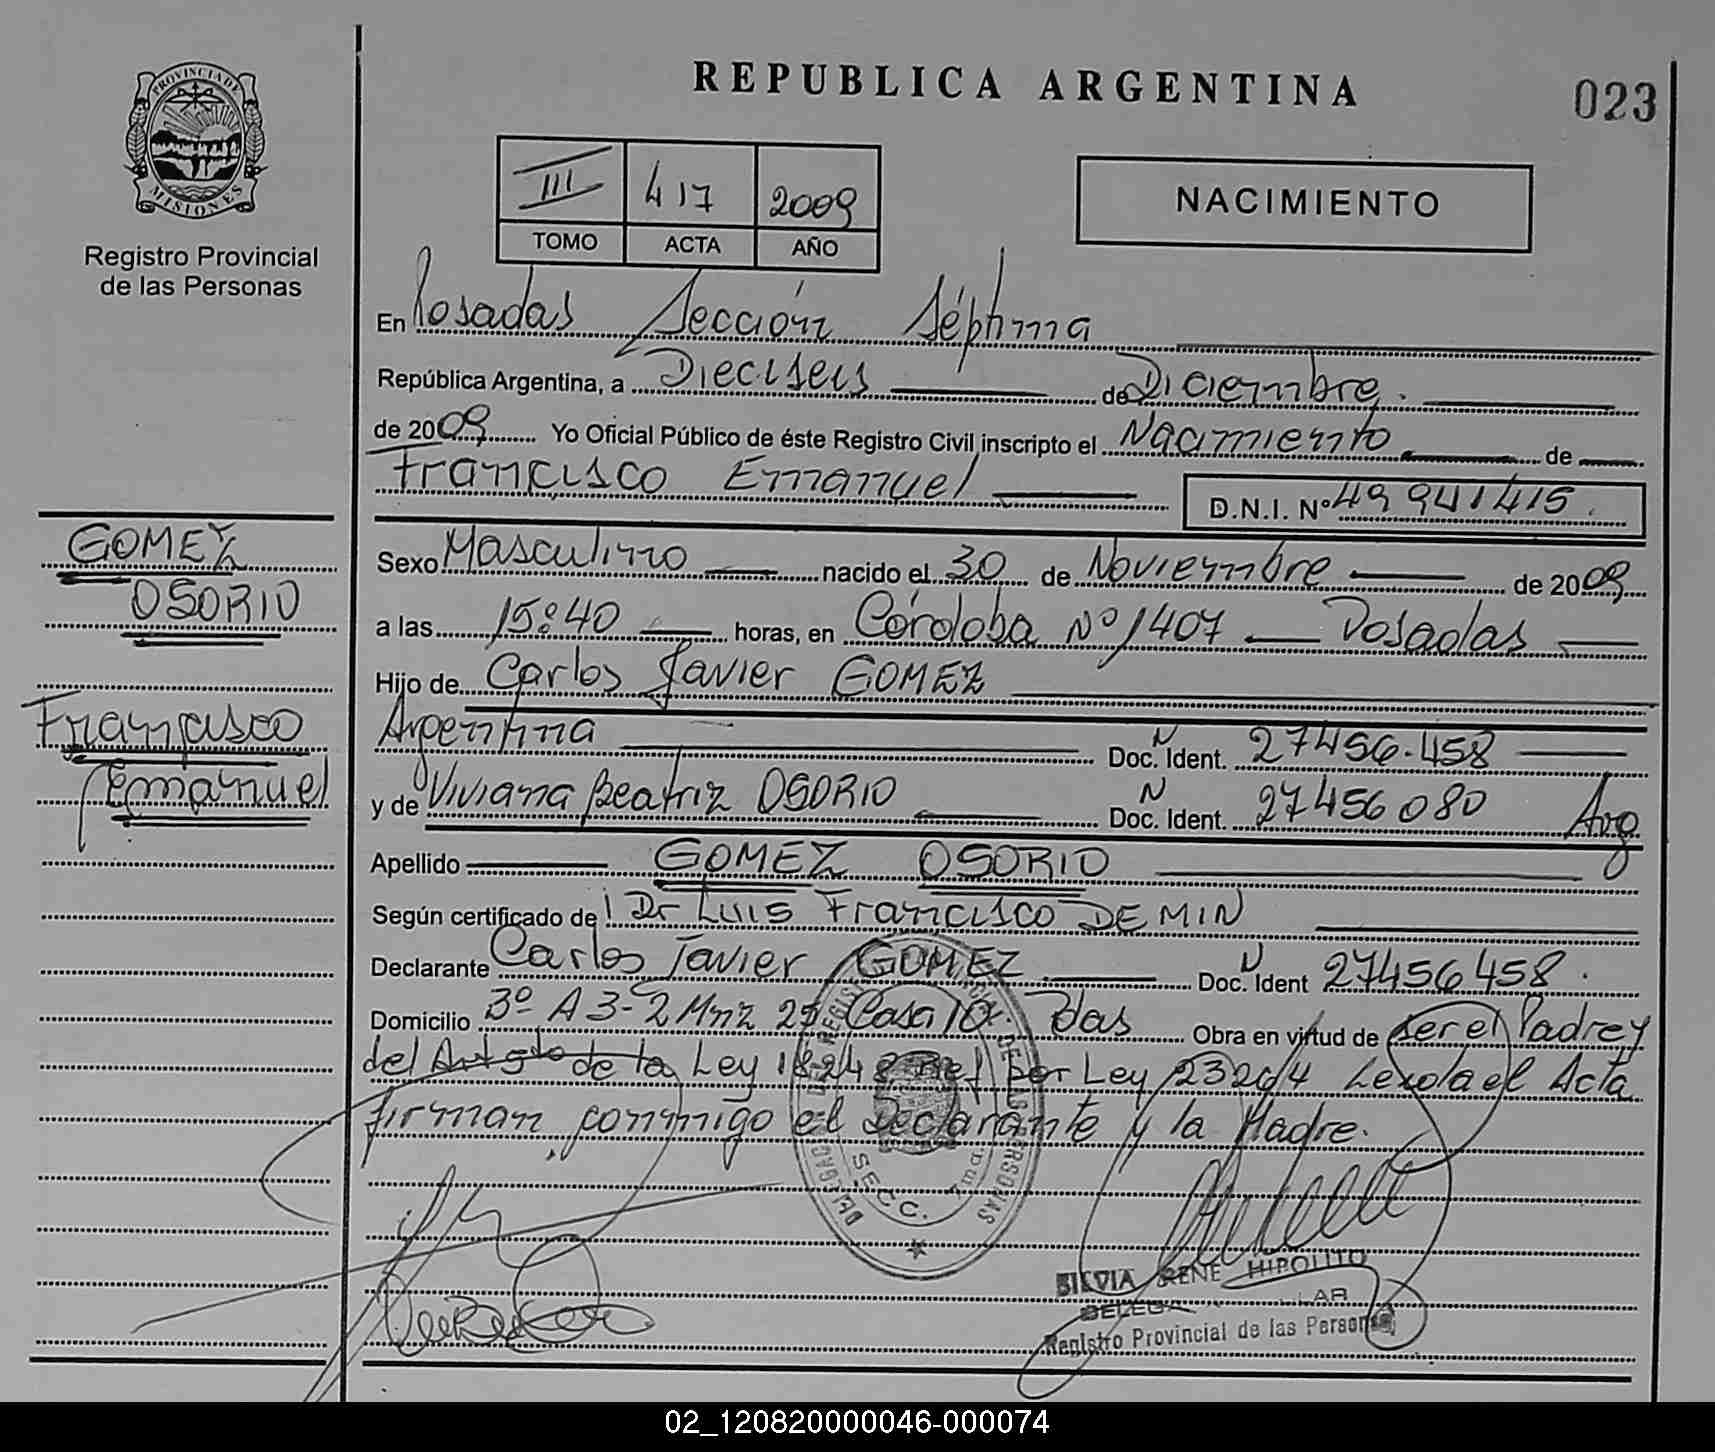 REPUBLICA ARGENTINA
023
PROVINCIA DE
MISIONES
Registro Provincial
de las Personas
III 417 2009
TOMO ACTA AÑO
NACIMIENTO
En Posadas Sección Séptima
República Argentina, a Dieciseis de Diciembre.
de 2009 Yo Oficial Público de éste Registro Civil inscripto el Nacimiento de
Francisco Emanuel D.N.I. Nº 49 941415.
GOMEZ
OSORIO
Francisco
Emanuel
Sexo Masculino nacido el 30 de Noviembre de 2009
a las 15:40 horas, en Córdoba Nº 1407 Posadas
Hijo de Carlos Javier GOMEZ
Argentina Doc. N Ident. 27456.458
y de Viviana Beatriz OSORIO Doc. N Ident. 27456080 Arg
Apellido GOMEZ OSORIO
Según certificado de Dr Luis Francisco DEMIN
Declarante Carlos Javier GOMEZ Doc. N Ident 27456458.
Domicilio 3º A 3-2 Mnz 25 Casa 10. Pdas Obra en virtud de ser el Padre y
del de la Ley 18248 Ref por Ley 23264 Leida el Acta
firman conmigo el Declarante y la Madre.
SECC.
SILVIA IRENE HIPOLITO
Registro Provincial de las Personas
02_120820000046-000074